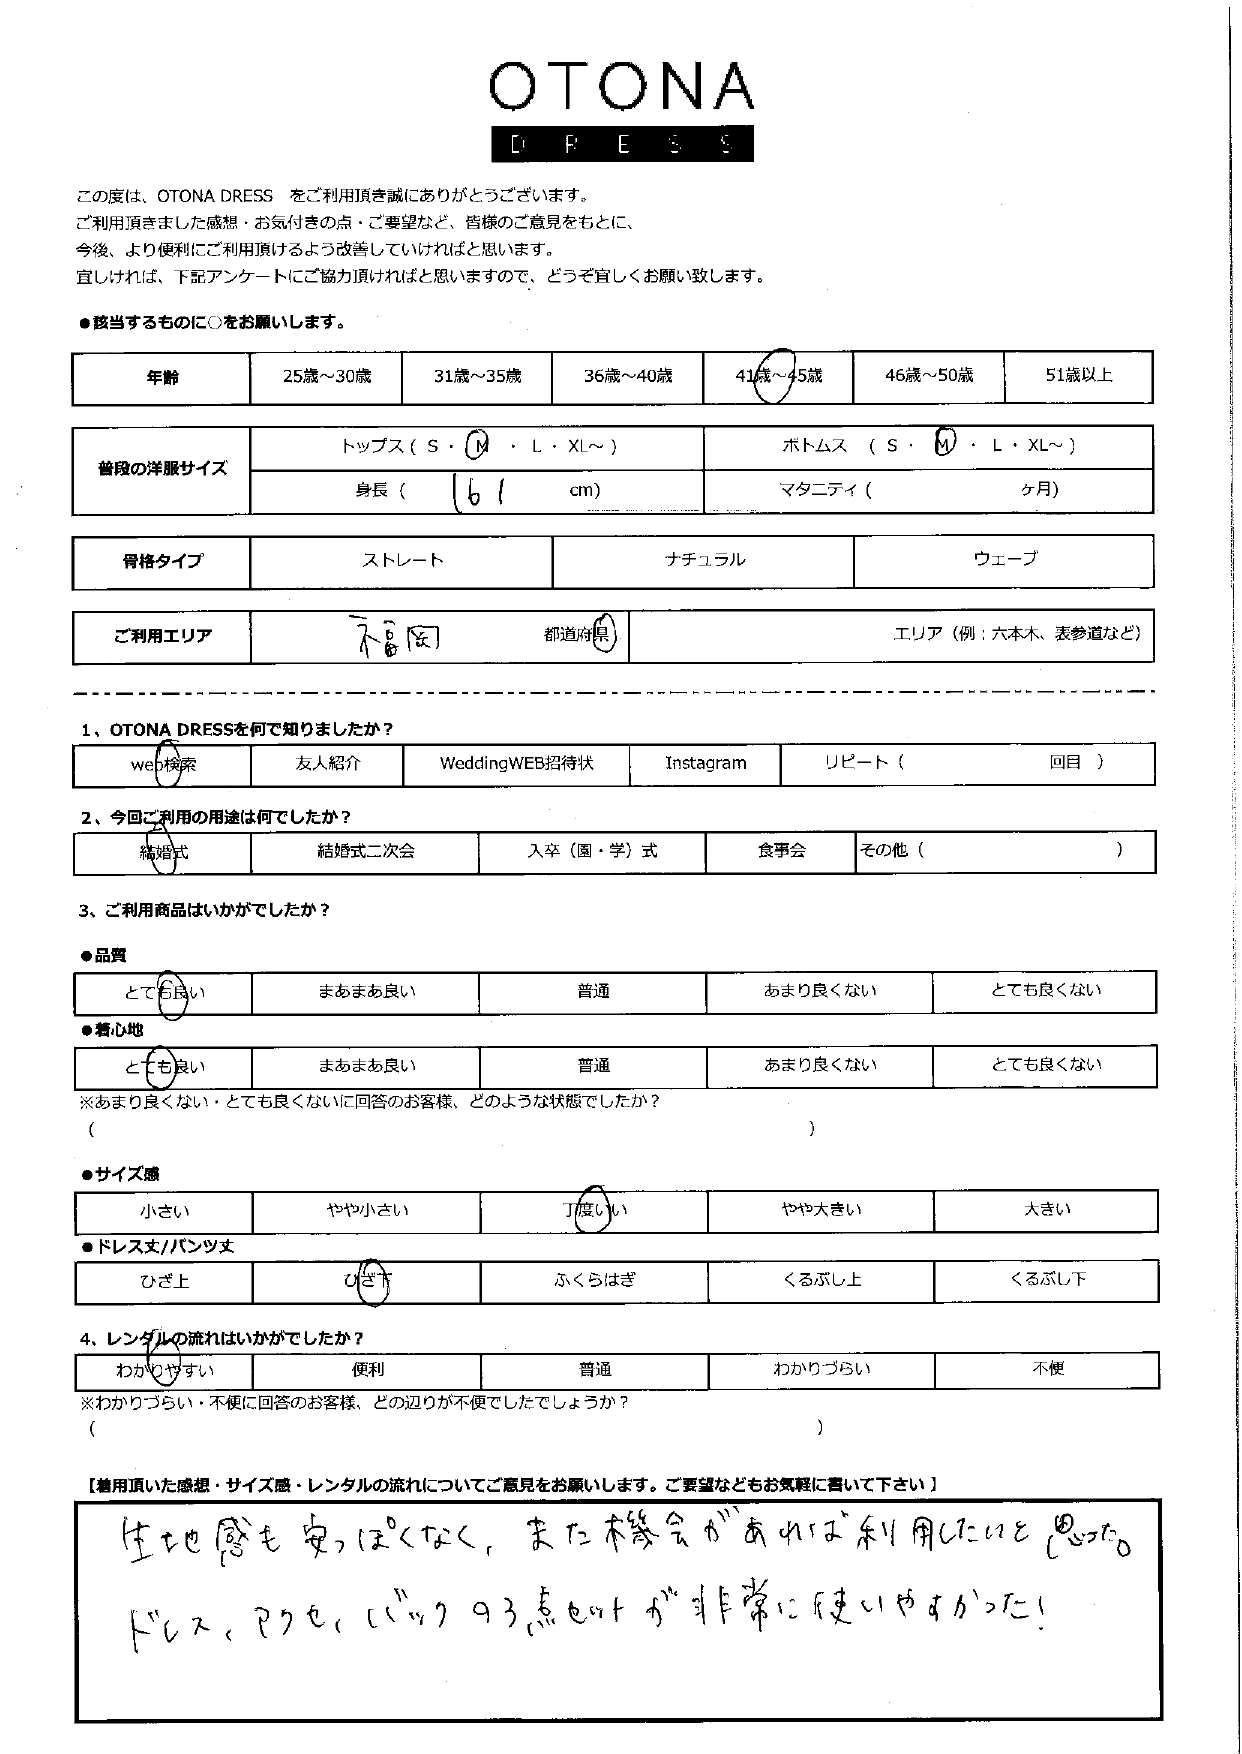 OTONA
DRESS
この度は、OTONA DRESS　をご利用頂き誠にありがとうございます。
ご利用頂きました感想・お気付きの点・ご要望など、皆様のご意見をもとに、
今後、より便利にご利用頂けるよう改善していければと思います。
宜しければ、下記アンケートにご協力頂ければと思いますので、どうぞ宜しくお願い致します。
●該当するものに○をお願いします。
年齢 25歳～30歳 31歳～35歳 36歳～40歳 41歳～45歳 46歳～50歳 51歳以上
普段の洋服サイズ トップス ( S ・ M ・ L ・ XL～ ) ボトムス ( S ・ M ・ L ・ XL～ )
身長 ( 161 cm) マタニティ ( ヶ月)
骨格タイプ ストレート ナチュラル ウェーブ
ご利用エリア 福岡 都道府県 エリア（例：六本木、表参道など）
1、OTONA DRESSを何で知りましたか？
web検索 友人紹介 WeddingWEB招待状 Instagram リピート ( 回目 )
2、今回ご利用の用途は何でしたか？
結婚式 結婚式二次会 入卒（園・学）式 食事会 その他 ( )
3、ご利用商品はいかがでしたか？
●品質
とても良い まあまあ良い 普通 あまり良くない とても良くない
●着心地
とても良い まあまあ良い 普通 あまり良くない とても良くない
※あまり良くない・とても良くないに回答のお客様、どのような状態でしたか？
( )
●サイズ感
小さい やや小さい 丁度いい やや大きい 大きい
●ドレス丈/パンツ丈
ひざ上 ひざ下 ふくらはぎ くるぶし上 くるぶし下
4、レンタルの流れはいかがでしたか？
わかりやすい 便利 普通 わかりづらい 不便
※わかりづらい・不便に回答のお客様、どの辺りが不便でしたでしょうか？
( )
【着用頂いた感想・サイズ感・レンタルの流れについてご意見をお願いします。ご要望などもお気軽に書いて下さい】
生地感も安っぽくなく、また機会があれば利用したいと思った。
ドレス、アクセ、バックの3点セットが非常に使いやすかった！